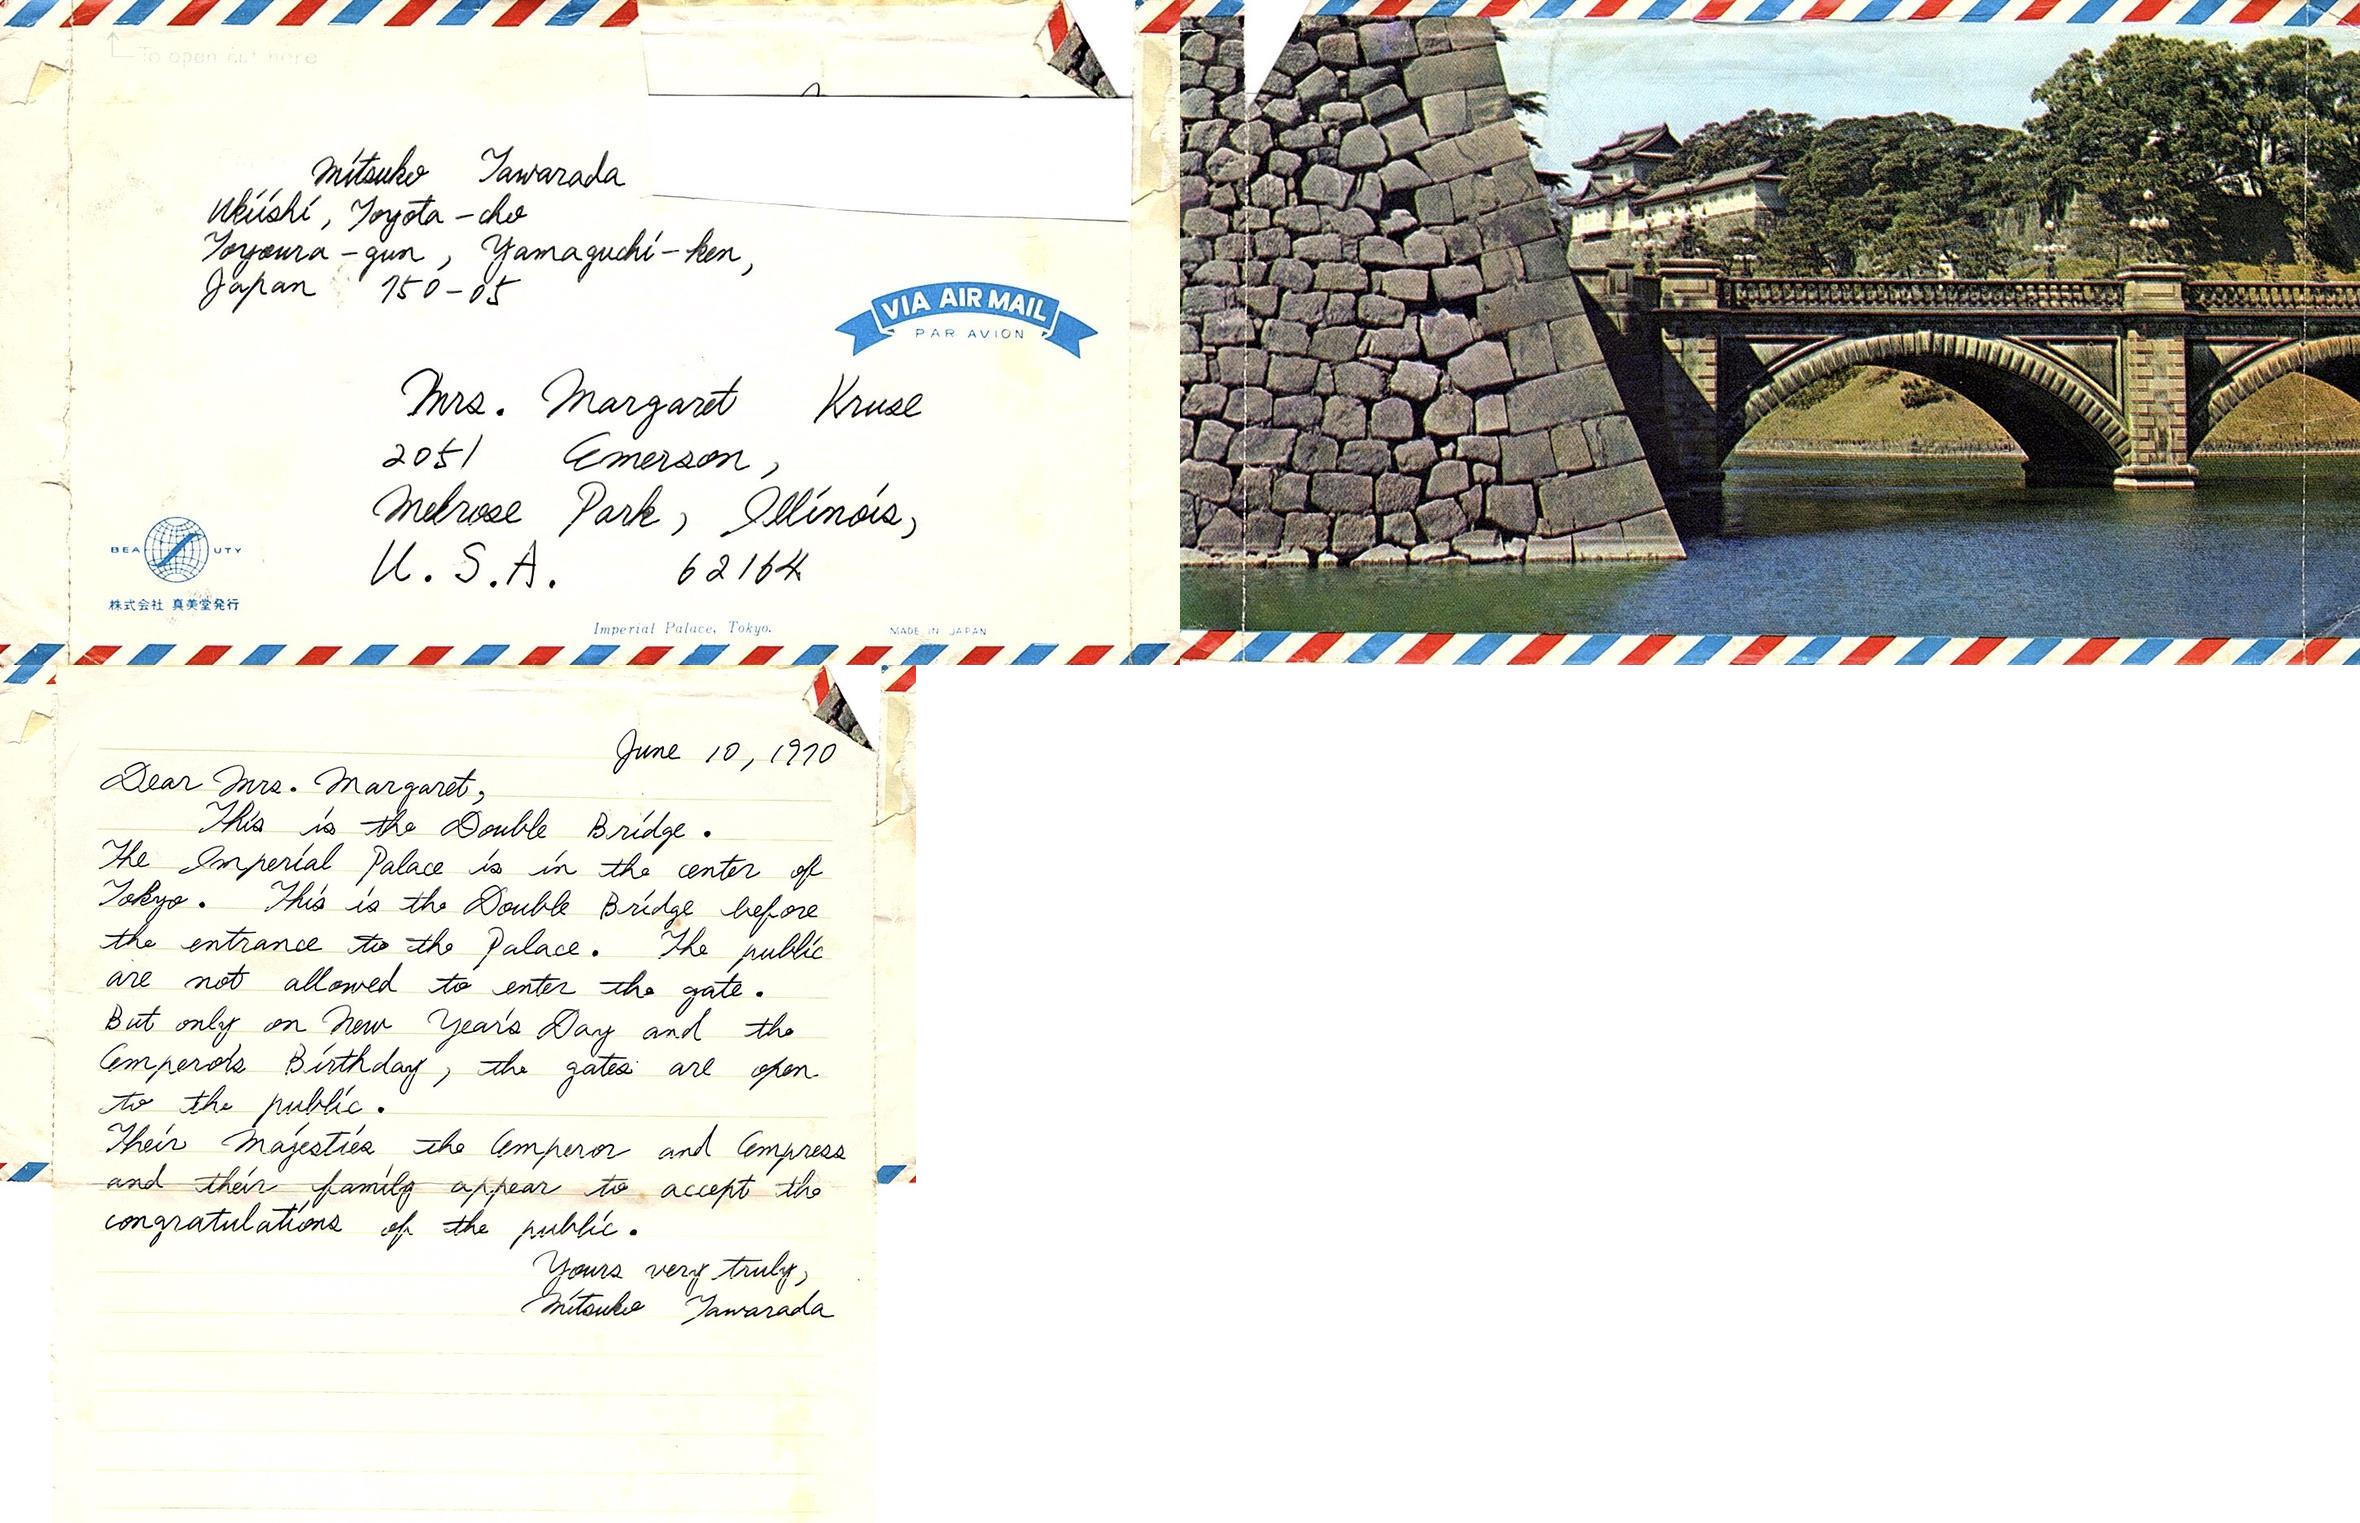 To open cut here
Mitsuko Tawarada
Ukiishi, Toyota-cho
Toyoura-gun, Yamaguchi-ken,
Japan 750-05
VIA AIR MAIL
PAR AVION
Mrs. Margaret Kruse
2051 Emerson,
Melrose Park, Illinois,
U.S.A. 62164
BEAUTY
株式会社 真美堂発行
Imperial Palace, Tokyo.
MADE IN JAPAN
June 10, 1970
Dear Mrs. Margaret,
This is the Double Bridge.
The Imperial Palace is in the center of
Tokyo. This is the Double Bridge before
the entrance to the Palace. The public
are not allowed to enter the gate.
But only on New Year's Day and the
Emperor's Birthday, the gates are open
to the public.
Their Majesties the Emperor and Empress
and their family appear to accept the
congratulations of the public.
Yours very truly,
Mitsuko Tawarada